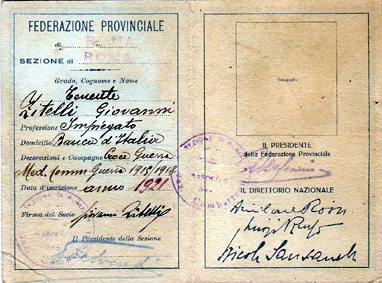 FEDERAZIONE PROVINCIALE
di ROMA
SEZIONE di ROMA
Grado, Cognome e Nome
Tenente
Zitelli Giovanni
Professione Impiegato
Domicilio Banca d'Italia
Decorazioni e Campagne Croce Guerra
Med. Comm. Guerra 1915/1918
Data d'iscrizione anno 1921
Firma del Socio Giovanni Zitelli
Il Presidente della Sezione
Fotografia
IL PRESIDENTE
della Federazione Provinciale
IL DIRETTORIO NAZIONALE
Amilcare Rossi
Luigi Russo
Nicola Sansanelli